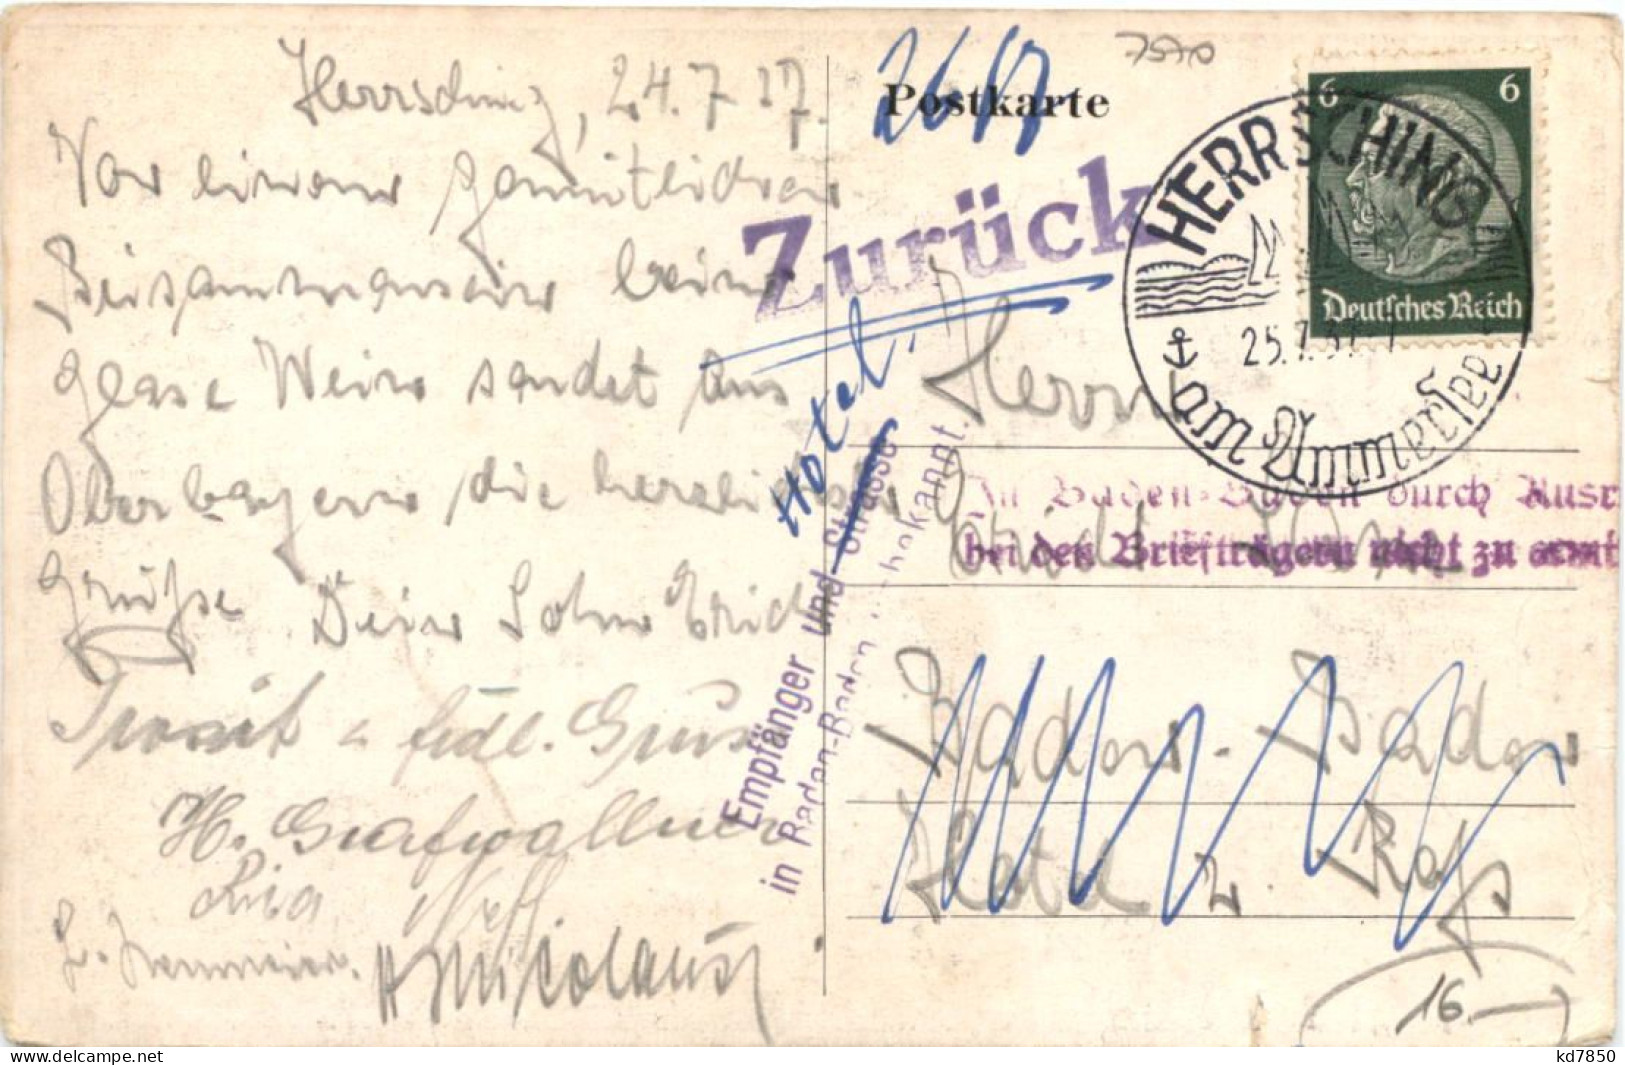 Herrsching, 24.7.37.
Von einem gemütlichen
Beisammensein beim
Glase Wein sendet aus
Oberbayern die herzlichsten
Grüße Dein Sohn Erich
Prosit & frdl. Gruss
H. Grafwallner
Lisa Neff.
Nicolaus
7570
26/7
Postkarte
Zurück
Hotel
Empfänger und Strasse
in Baden-Baden unbekannt.
6 6
Deutsches Reich
HERRSCHING
25.7.37
am Ammersee
Herrn
In Baden-Baden durch Ausr
bei den Briefträgern nicht zu ermit
Baden-Baden
Hotel z. Roß
16.—
kd7850